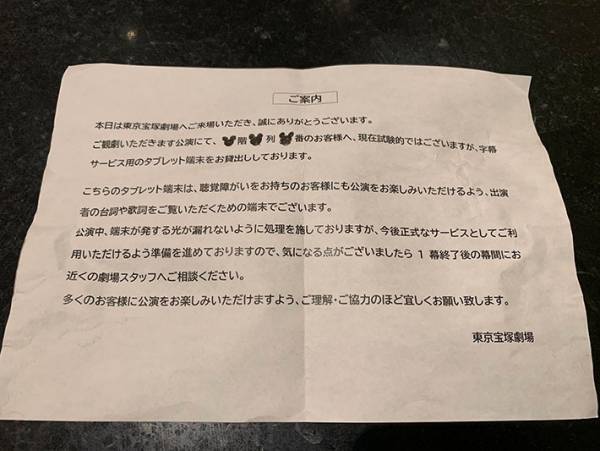 ご案内
本日は東京宝塚劇場へご来場いただき、誠にありがとうございます。
ご観劇いただきます公演にて、階列番のお客様へ、現在試験的ではございますが、字幕
サービス用のタブレット端末をお貸出ししております。
こちらのタブレット端末は、聴覚障がいをお持ちのお客様にも公演をお楽しみいただけるよう、出演
者の台詞や歌詞をご覧いただくための端末でございます。
公演中、端末が発する光が漏れないように処理を施しておりますが、今後正式なサービスとしてご利
用いただけるよう準備を進めておりますので、気になる点がございましたら 1 幕終了後の幕間にお
近くの劇場スタッフへご相談ください。
多くのお客様に公演をお楽しみいただけますよう、ご理解・ご協力のほど宜しくお願い致します。
東京宝塚劇場